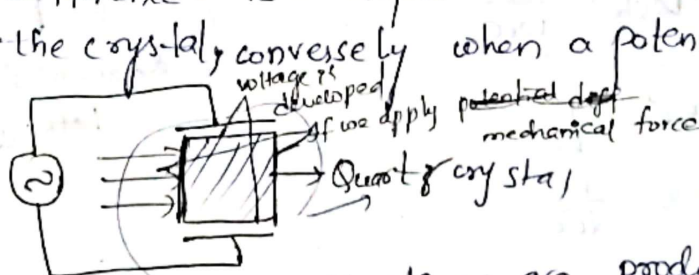 the crystal, conversely when a poten
voltage is
developed
If we apply potential diff
mechanical force
Quartz crystal
prod